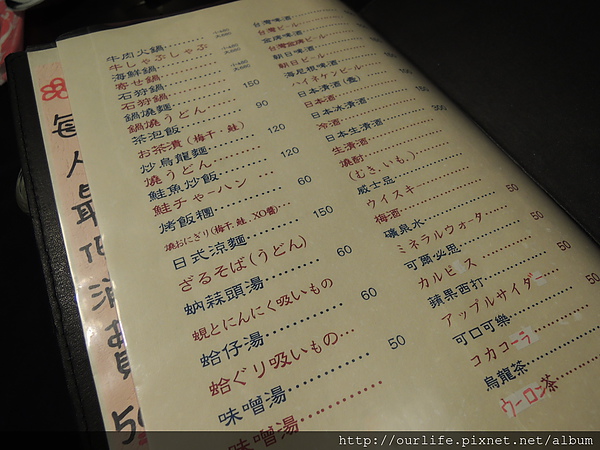 牛肉火鍋
牛しゃぶしゃぶ
海鮮鍋
寄せ鍋
石狩鍋 150
石狩鍋
鍋燒麵 90
鍋燒うどん
茶泡飯 120
お茶漬(梅干,鮭)
炒烏龍麵 120
燒うどん
鮭魚炒飯 60
鮭チャーハン
烤飯糰 150
燒おにぎり(梅干,鮭,XO醬)
日式涼麵 60
ざるそば(うどん)
蚋蒜頭湯 60
蜆とにんにく吸いもの
蛤仔湯 50
蛤ぐり吸いもの
味噌湯
味噌湯
台灣啤酒
台灣ビール
金牌啤酒
台灣金牌ビール
朝日啤酒
朝日ビール
海尼根啤酒
ハイネケンビール
日本清酒(壹)
日本酒
日本冰清酒
冷酒
日本生清酒
生清酒
燒酎
(むぎ,いも,)
威士忌
ウイスキー
梅酒
礦泉水 50
ミネラルウォーター
可爾必思 50
カルピス
蘋果西打 50
アップルサイダー
可口可樂
コカコーラ
烏龍茶
ウーロン茶
每人最低消費
http://ourlife.pixnet.net/album